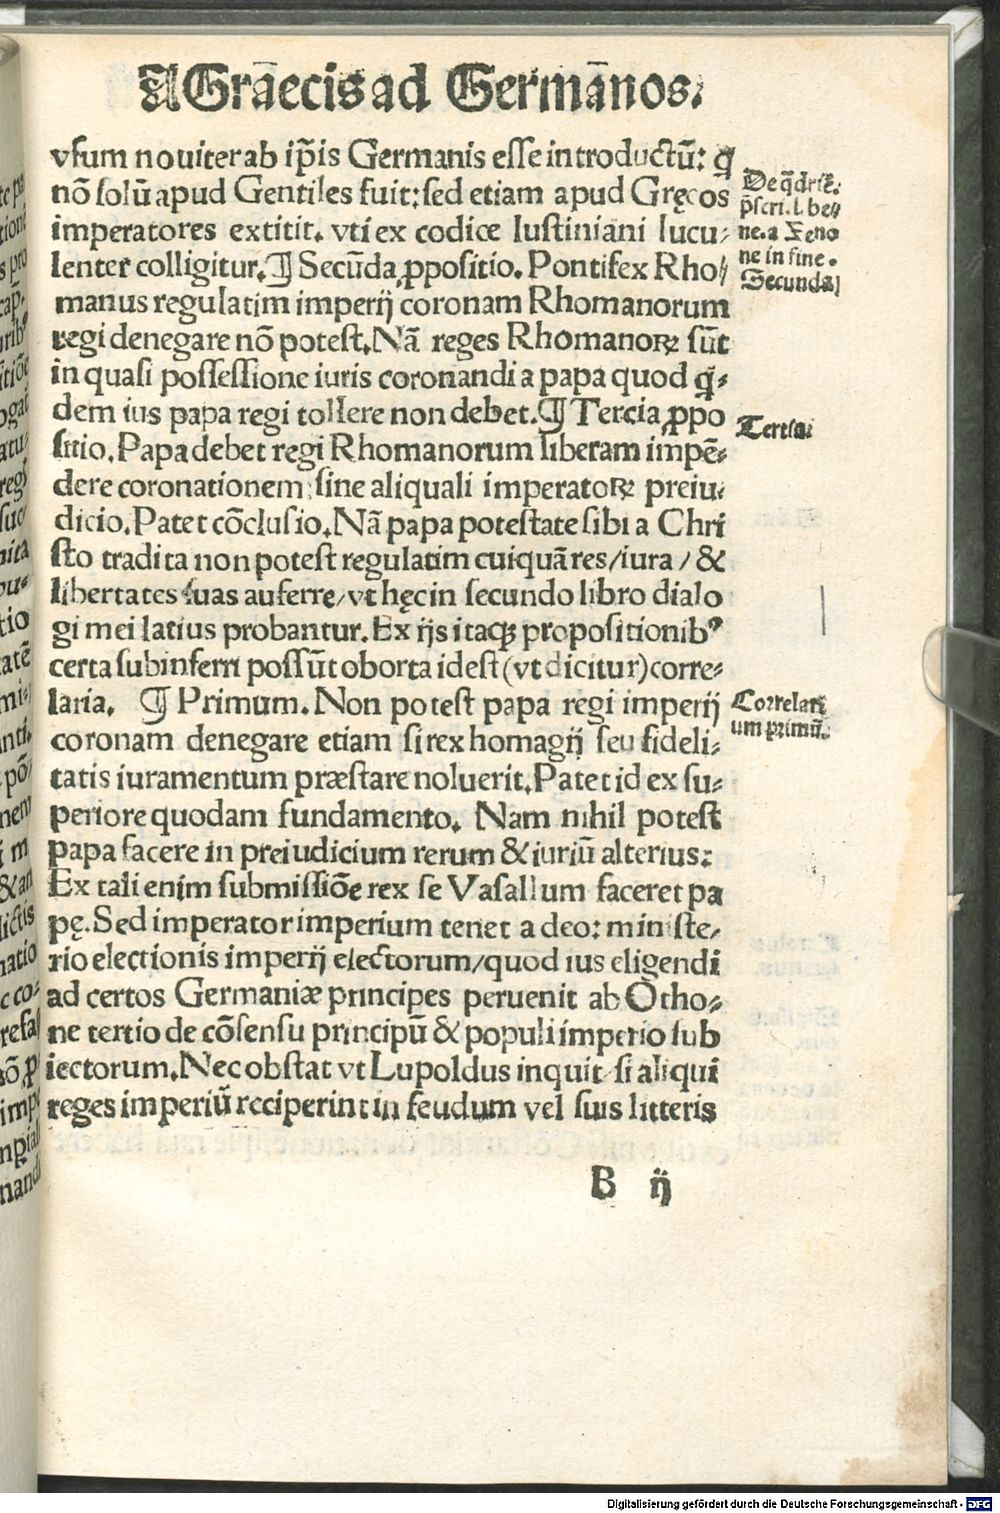 A Grãecis ad Germãnos.
vſum nouiter ab ip̃is Germanis eſſe introductũ: q̃
nõ ſolũ apud Gentiles fuit: ſed etiam apud Gręcos
imperatores extitit. vti ex codice Iuſtiniani lucu⸗
lenter colligitur. ¶ Secũda ꝓpoſitio. Pontifex Rho⸗
manus regulatim imperij coronam Rhomanorum
regi denegare nõ poteſt. Nã reges Rhomanoꝝ ſũt
in quaſi poſſeſſione iuris coronandi a papa quod q̃⸗
dem ius papa regi tollere non debet. ¶ Tercia ꝓpo
ſitio. Papa debet regi Rhomanorum liberam impẽ⸗
dere coronationem ſine aliquali imperatoꝝ preiu⸗
dicio. Patet cõcluſio. Nã papa poteſtate ſibi a Chri
ſto tradita non poteſt regulatim cuiquã res/iura/ &
libertates ſuas auferre/vt hęc in ſecundo libro dialo
gi mei latius probantur. Ex ijs itaqꝫ propoſitionibꝰ
certa ſubinferri poſſũt oborta ideſt (vt dicitur) corre⸗
laria. ¶ Primum. Non poteſt papa regi imperij
coronam denegare etiam ſi rex homagij ſeu fideli⸗
tatis iuramentum præſtare noluerit. Patet id ex ſu⸗
periore quodam fundamento. Nam nihil poteſt
papa facere in preiudicium rerum & iuriũ alterius:
Ex tali enim ſubmiſſiõe rex ſe Vaſallum faceret pa
pę. Sed imperator imperium tenet a deo: miniſte⸗
rio electionis imperij electorum/quod ius eligendi
ad certos Germaniæ principes peruenit ab Otho⸗
ne tertio de cõſenſu principũ & populi imperio ſub
iectorum. Nec obſtat vt Lupoldus inquit ſi aliqui
reges imperiũ reciperint in feudum vel ſuis litteris
B ij
ne. a Zeno
ne in fine.
Secunda
Tertia
Correlari
um primũ.
Digitalisierung gefördert durch die Deutsche Forschungsgemeinschaft - DFG